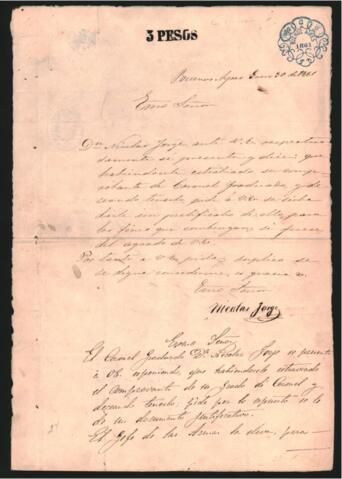 3 PESOS
1861
Buenos Ayres Enero 30 de 1861
Exmo Señor
Dn Nicolas Jorge, ante V.E. respetuo
samente se presenta y dice: que
habiendosele extraviado su compro
bante de Coronel Graduado, y de
desearando pide à V.E. se sirva
darle un justificado de ello, para
los fines que convengan, si fuese
del agrado de V.E.
Por tanto a V.E. pide y suplica se
se digne concederme, es gracia
Exmo Señor
Nicolas Jorge
Exmo Señor
El Coronel Graduado Dn Nicolas Jorge se presenta
à V.E. esponiendo, que habiendosele extraviado
el comprovante de su grado de Coronel y
pide por lo espuesto se le
de un documento justificativo.
El Jefe de las Armas lo eleva, para